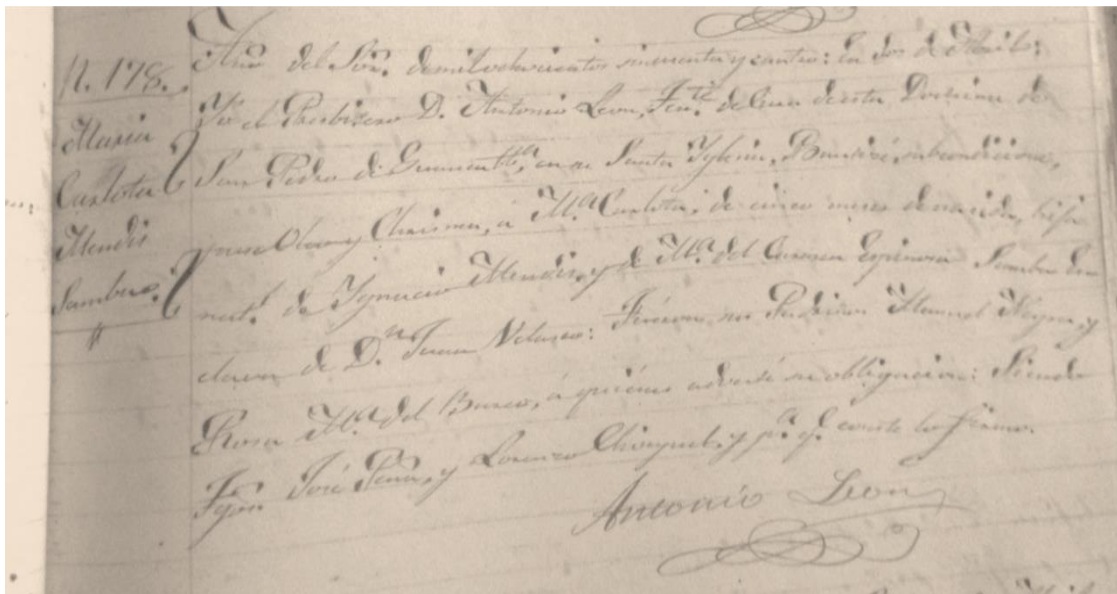 N. 178.
Maria
Carlota
Mendis
Samba.
Año del Sôr. de mil ochocientos sincuenta y cuatro: En dos de Abril:
Yo el Presbitero D. Antonio Leon, Tente. de Cura de esta Doctrina de
San Pedro de en su Santa Yglesia, Bautisé, subcondicione,
puse Oleo y Chrisma, á Ma. Carlota, de cinco meses de nacida, hija
natl. de Ygnacio Mendis, y de Ma. del Carmen Espinosa Samba Es
clava de Dn. Juan Velasco: Fueron sus Padrinos Manuel y
Rosa Ma. del Busco, á quienes advertí su obligacion: Siendo
Tgos. José Peña, y Lorenzo y pa. q. conste lo firmo.
Antonio Leon